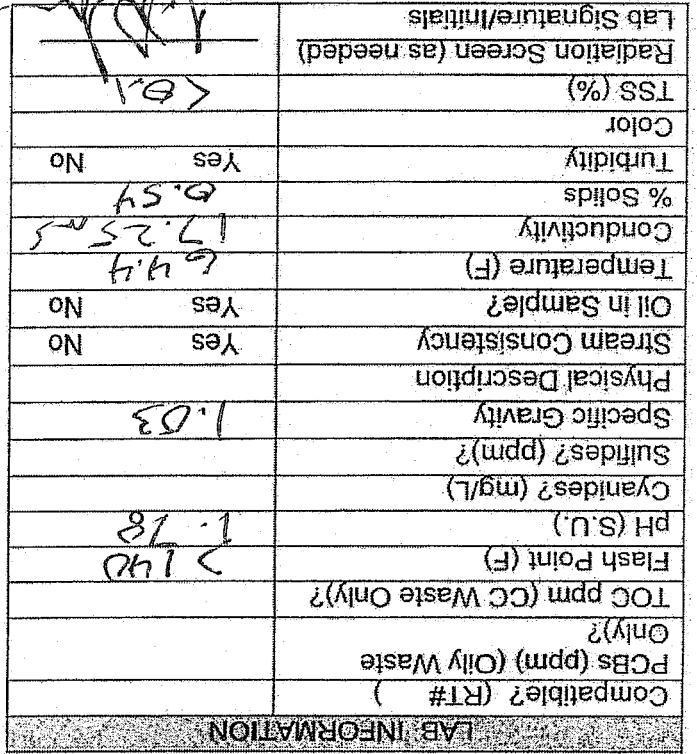 LAB INFORMATION
Compatible? (RT# )
PCBs (ppm) (Oily Waste
Only)?
TOC ppm (CC Waste Only)?
Flash Point (F) >140
pH (S.U.) 1.78
Cyanides? (mg/L)
Sulfides? (ppm)?
Specific Gravity 1.03
Physical Description
Stream Consistency Yes No
Oil in Sample? Yes No
Temperature (F) 64.4
Conductivity 17.25 mS
% Solids 0.54
Turbidity Yes No
Color
TSS (%) <0.1
Radiation Screen (as needed)
Lab Signature/Initials